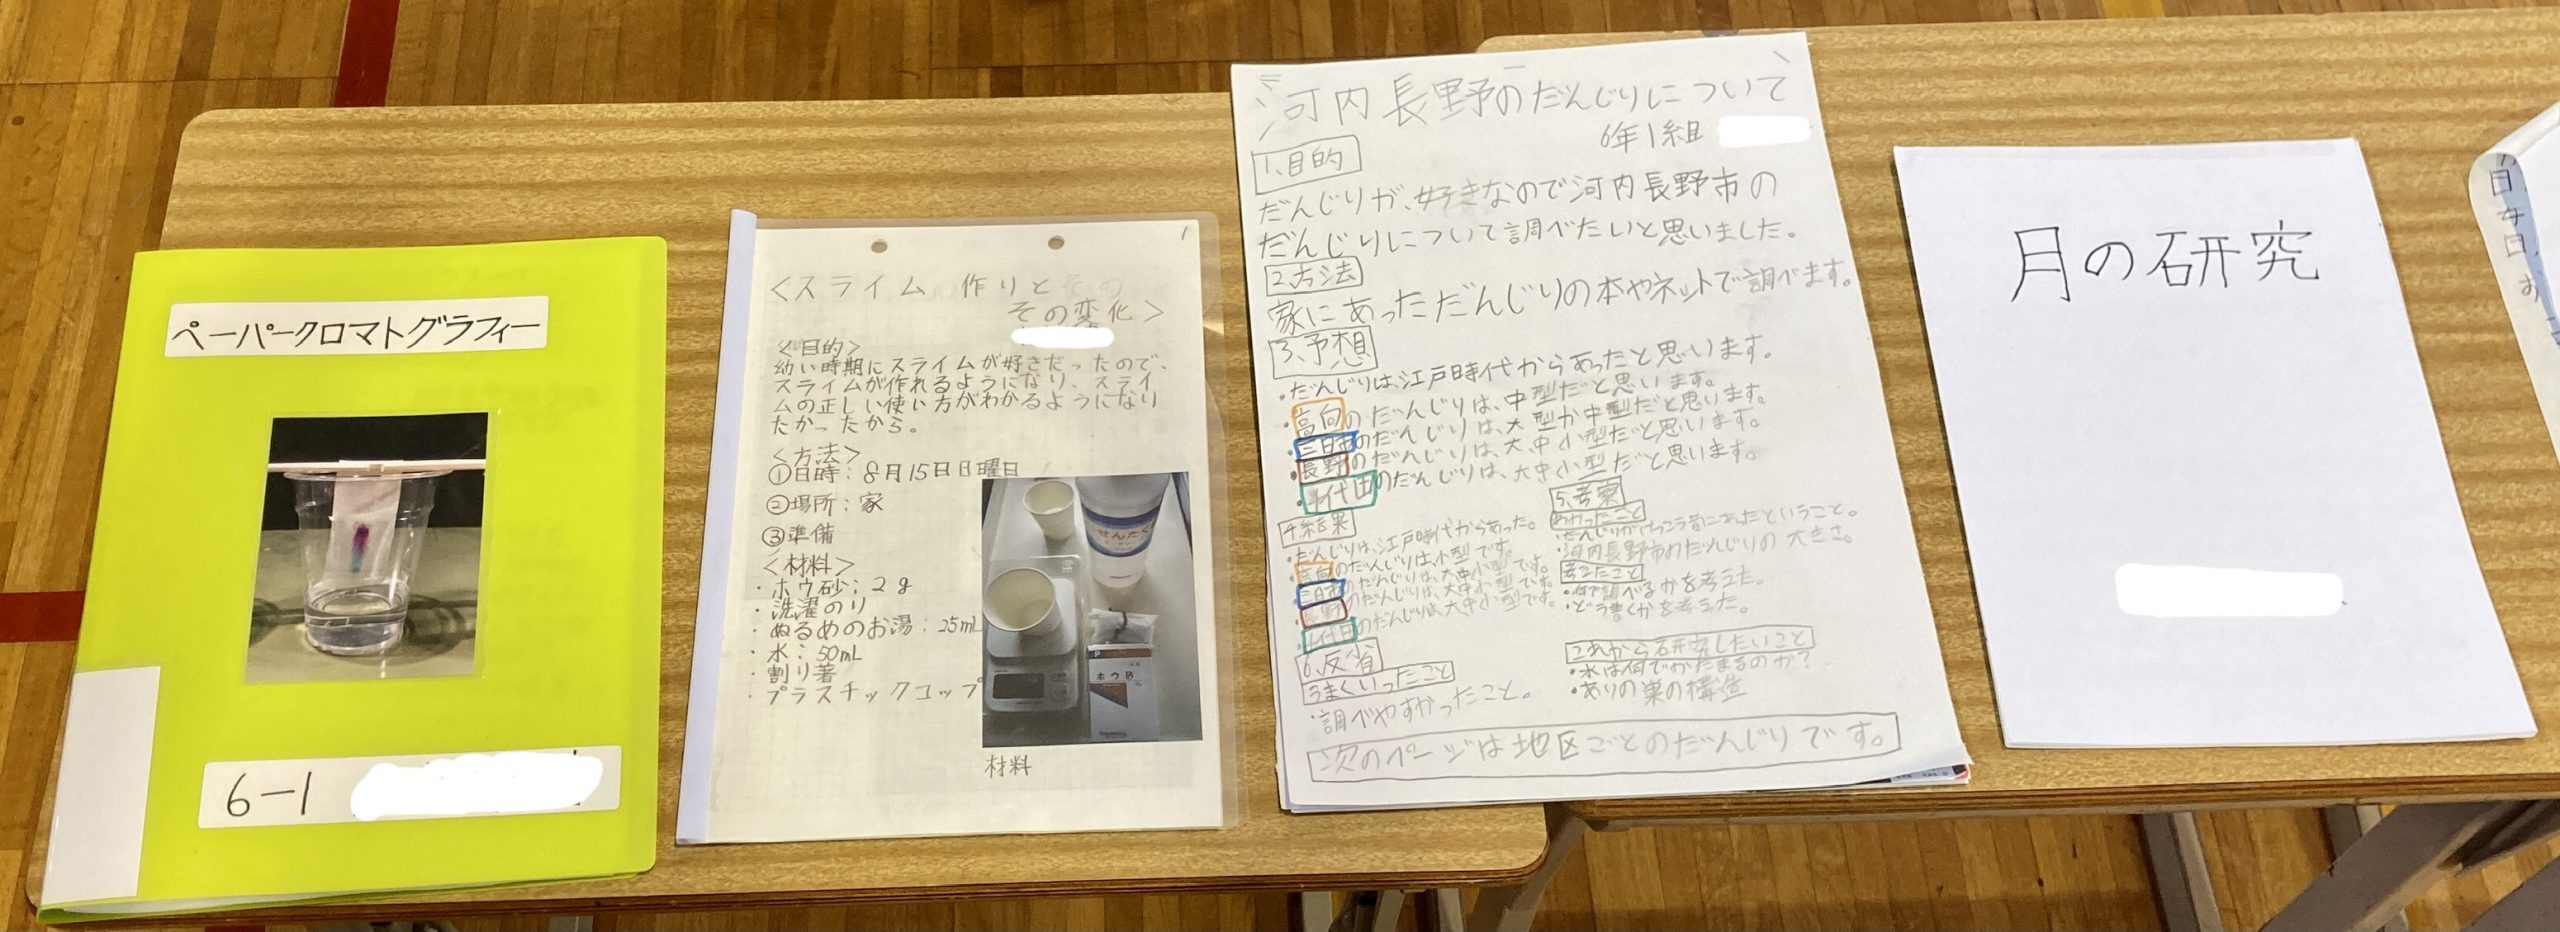 ペーパークロマトグラフィー
6-1
1
<スライム作りとその
その変化>
<目的>
幼い時期にスライムが好きだったので、
スライムが作れるようになり、スライ
ムの正しい使い方がわかるようになり
たかったから。
<方法>
①日時:8月15日日曜日
②場所:家
③準備
<材料>
・ホウ砂:2g
・洗濯のり
・ぬるめのお湯:25mL
・水:50mL
・割り箸
・プラスチックコップ
せんたく
ホウ砂
材料
河内長野のだんじりについて
6年1組
1.目的
だんじりが、好きなので河内長野市の
だんじりについて調べたいと思いました。
2.方法
家にあっただんじりの本やネットで調べます。
3.予想
・だんじりは、江戸時代からあったと思います。
・高向のだんじりは、中型だと思います。
・三日市のだんじりは、大型か中型だと思います。
・長野のだんじりは、大中小型だと思います。
・千代田のだんじりは、大中小型だと思います。
4.結果
・だんじりは、江戸時代からあった。
・高向のだんじりは、小型です。
・三日市のだんじりは、大中小型です。
・長野のだんじりは、大中小型です。
・千代田のだんじりは、大中小型です。
5.考察
わかったこと
・だんじりがけっこう昔にあったということ。
・河内長野市のだんじりの大きさ。
考えたこと
・何で調べるかを考えた。
・どう書くかを考えた。
6.反省
うまくいったこと
・調べやすかったこと。
これから研究したいこと
・氷は何でかたまるのか?
・ありの巣の構造
次のページは地区ごとのだんじりです。
月の研究